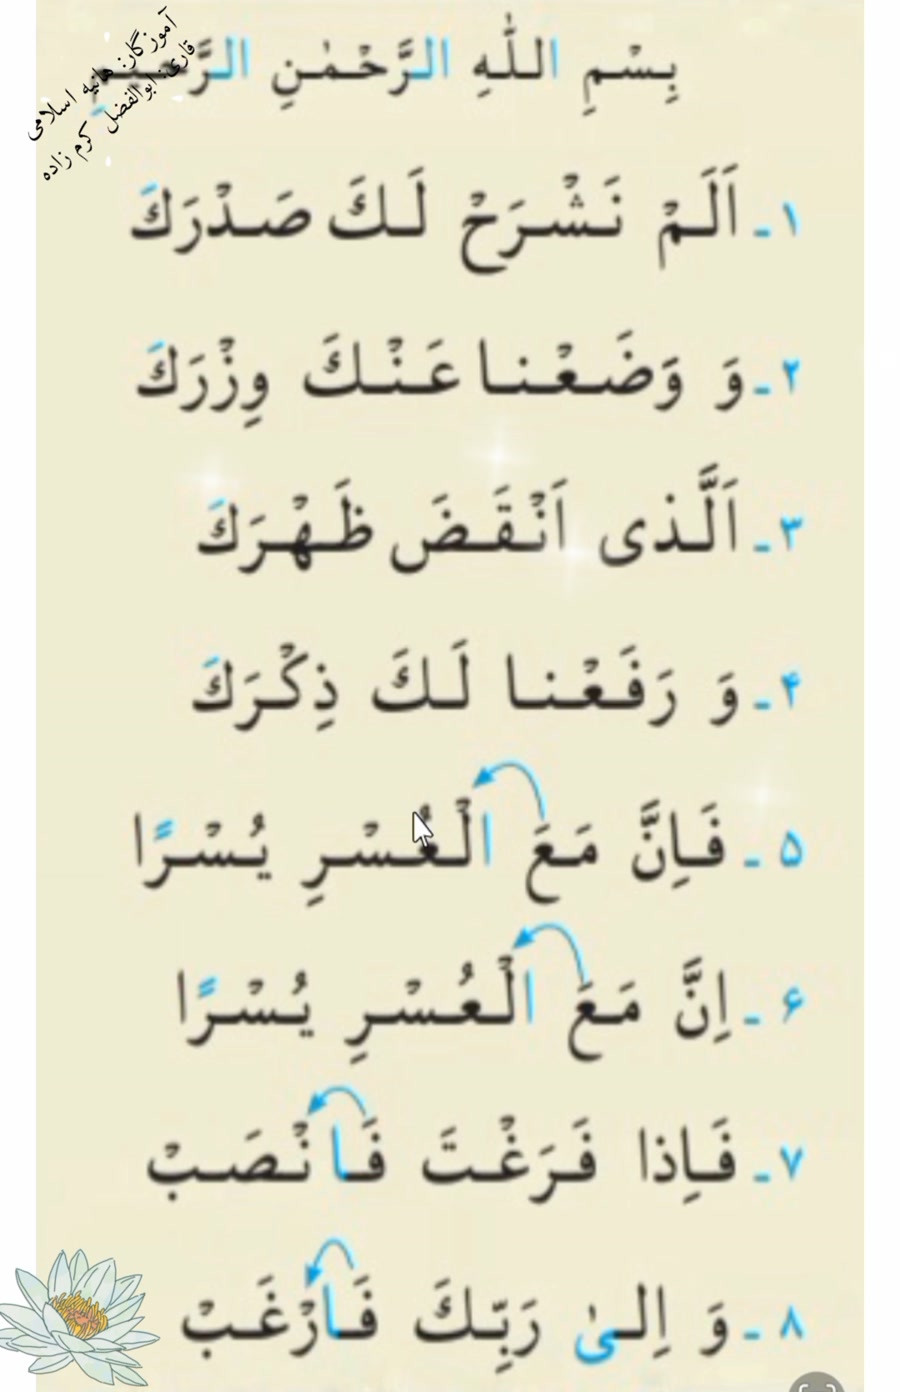 آموزگار: هانیه اسلامی
قاری: ابوالفضل کرم زاده
بِسْمِ اللّٰهِ الرَّحْمٰنِ الرَّحیمِ
۱ـ اَلَمْ نَشْرَحْ لَكَ صَدْرَكَ
۲ـ وَ وَضَعْنا عَنْكَ وِزْرَكَ
۳ـ اَلَّذی اَنْقَضَ ظَهْرَكَ
۴ـ وَ رَفَعْنا لَكَ ذِكْرَكَ
۵ـ فَاِنَّ مَعَ الْعُسْرِ یُسْرًا
۶ـ اِنَّ مَعَ الْعُسْرِ یُسْرًا
۷ـ فَاِذا فَرَغْتَ فَانْصَبْ
۸ـ وَ اِلیٰ رَبِّكَ فَارْغَبْ